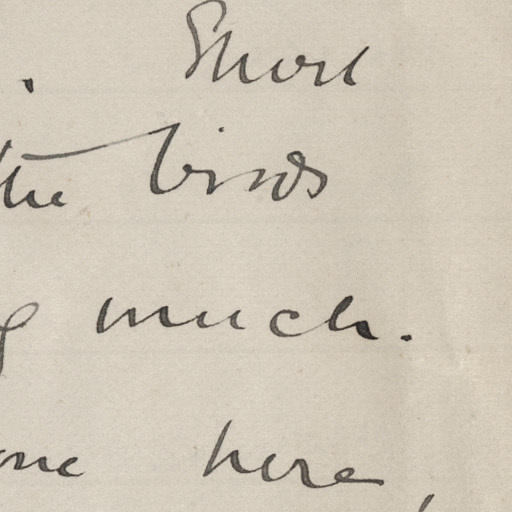 . Short
the birds
much.
here,